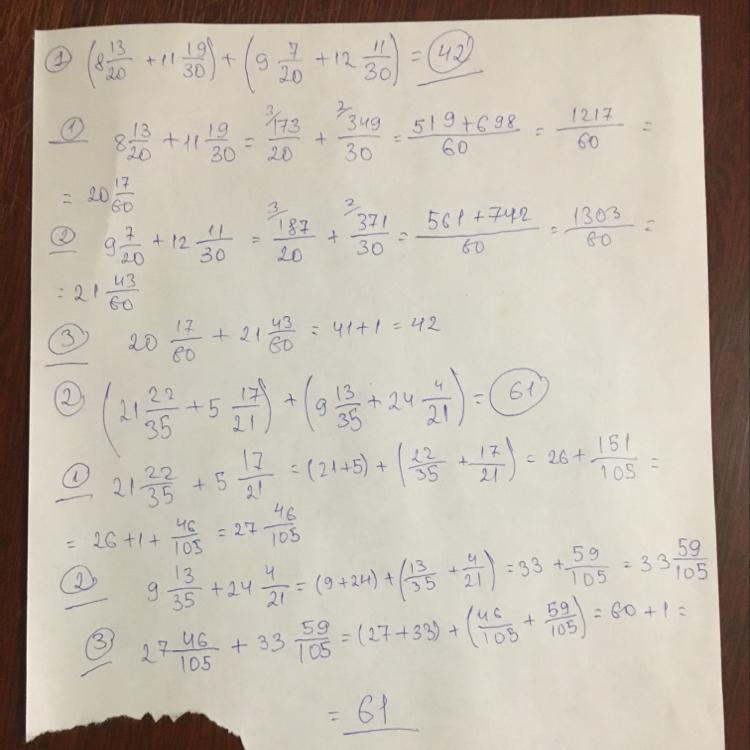 ① (8 13/20 + 11 19/30) + (9 7/20 + 12 11/30) = 42
① 8 13/20 + 11 19/30 = ³/173/20 + ²/349/30 = 519+698/60 = 1217/60 =
= 20 17/60
② 9 7/20 + 12 11/30 = ³/187/20 + ²/371/30 = 561+742/60 = 1303/60 =
= 21 43/60
③ 20 17/60 + 21 43/60 = 41+1 = 42
② (21 22/35 + 5 17/21) + (9 13/35 + 24 4/21) = 61
① 21 22/35 + 5 17/21 = (21+5) + (22/35 + 17/21) = 26 + 151/105 =
= 26+1+ 46/105 = 27 46/105
② 9 13/35 + 24 4/21 = (9+24) + (13/35 + 4/21) = 33 + 59/105 = 33 59/105
③ 27 46/105 + 33 59/105 = (27+33) + (46/105 + 59/105) = 60 + 1 =
= 61